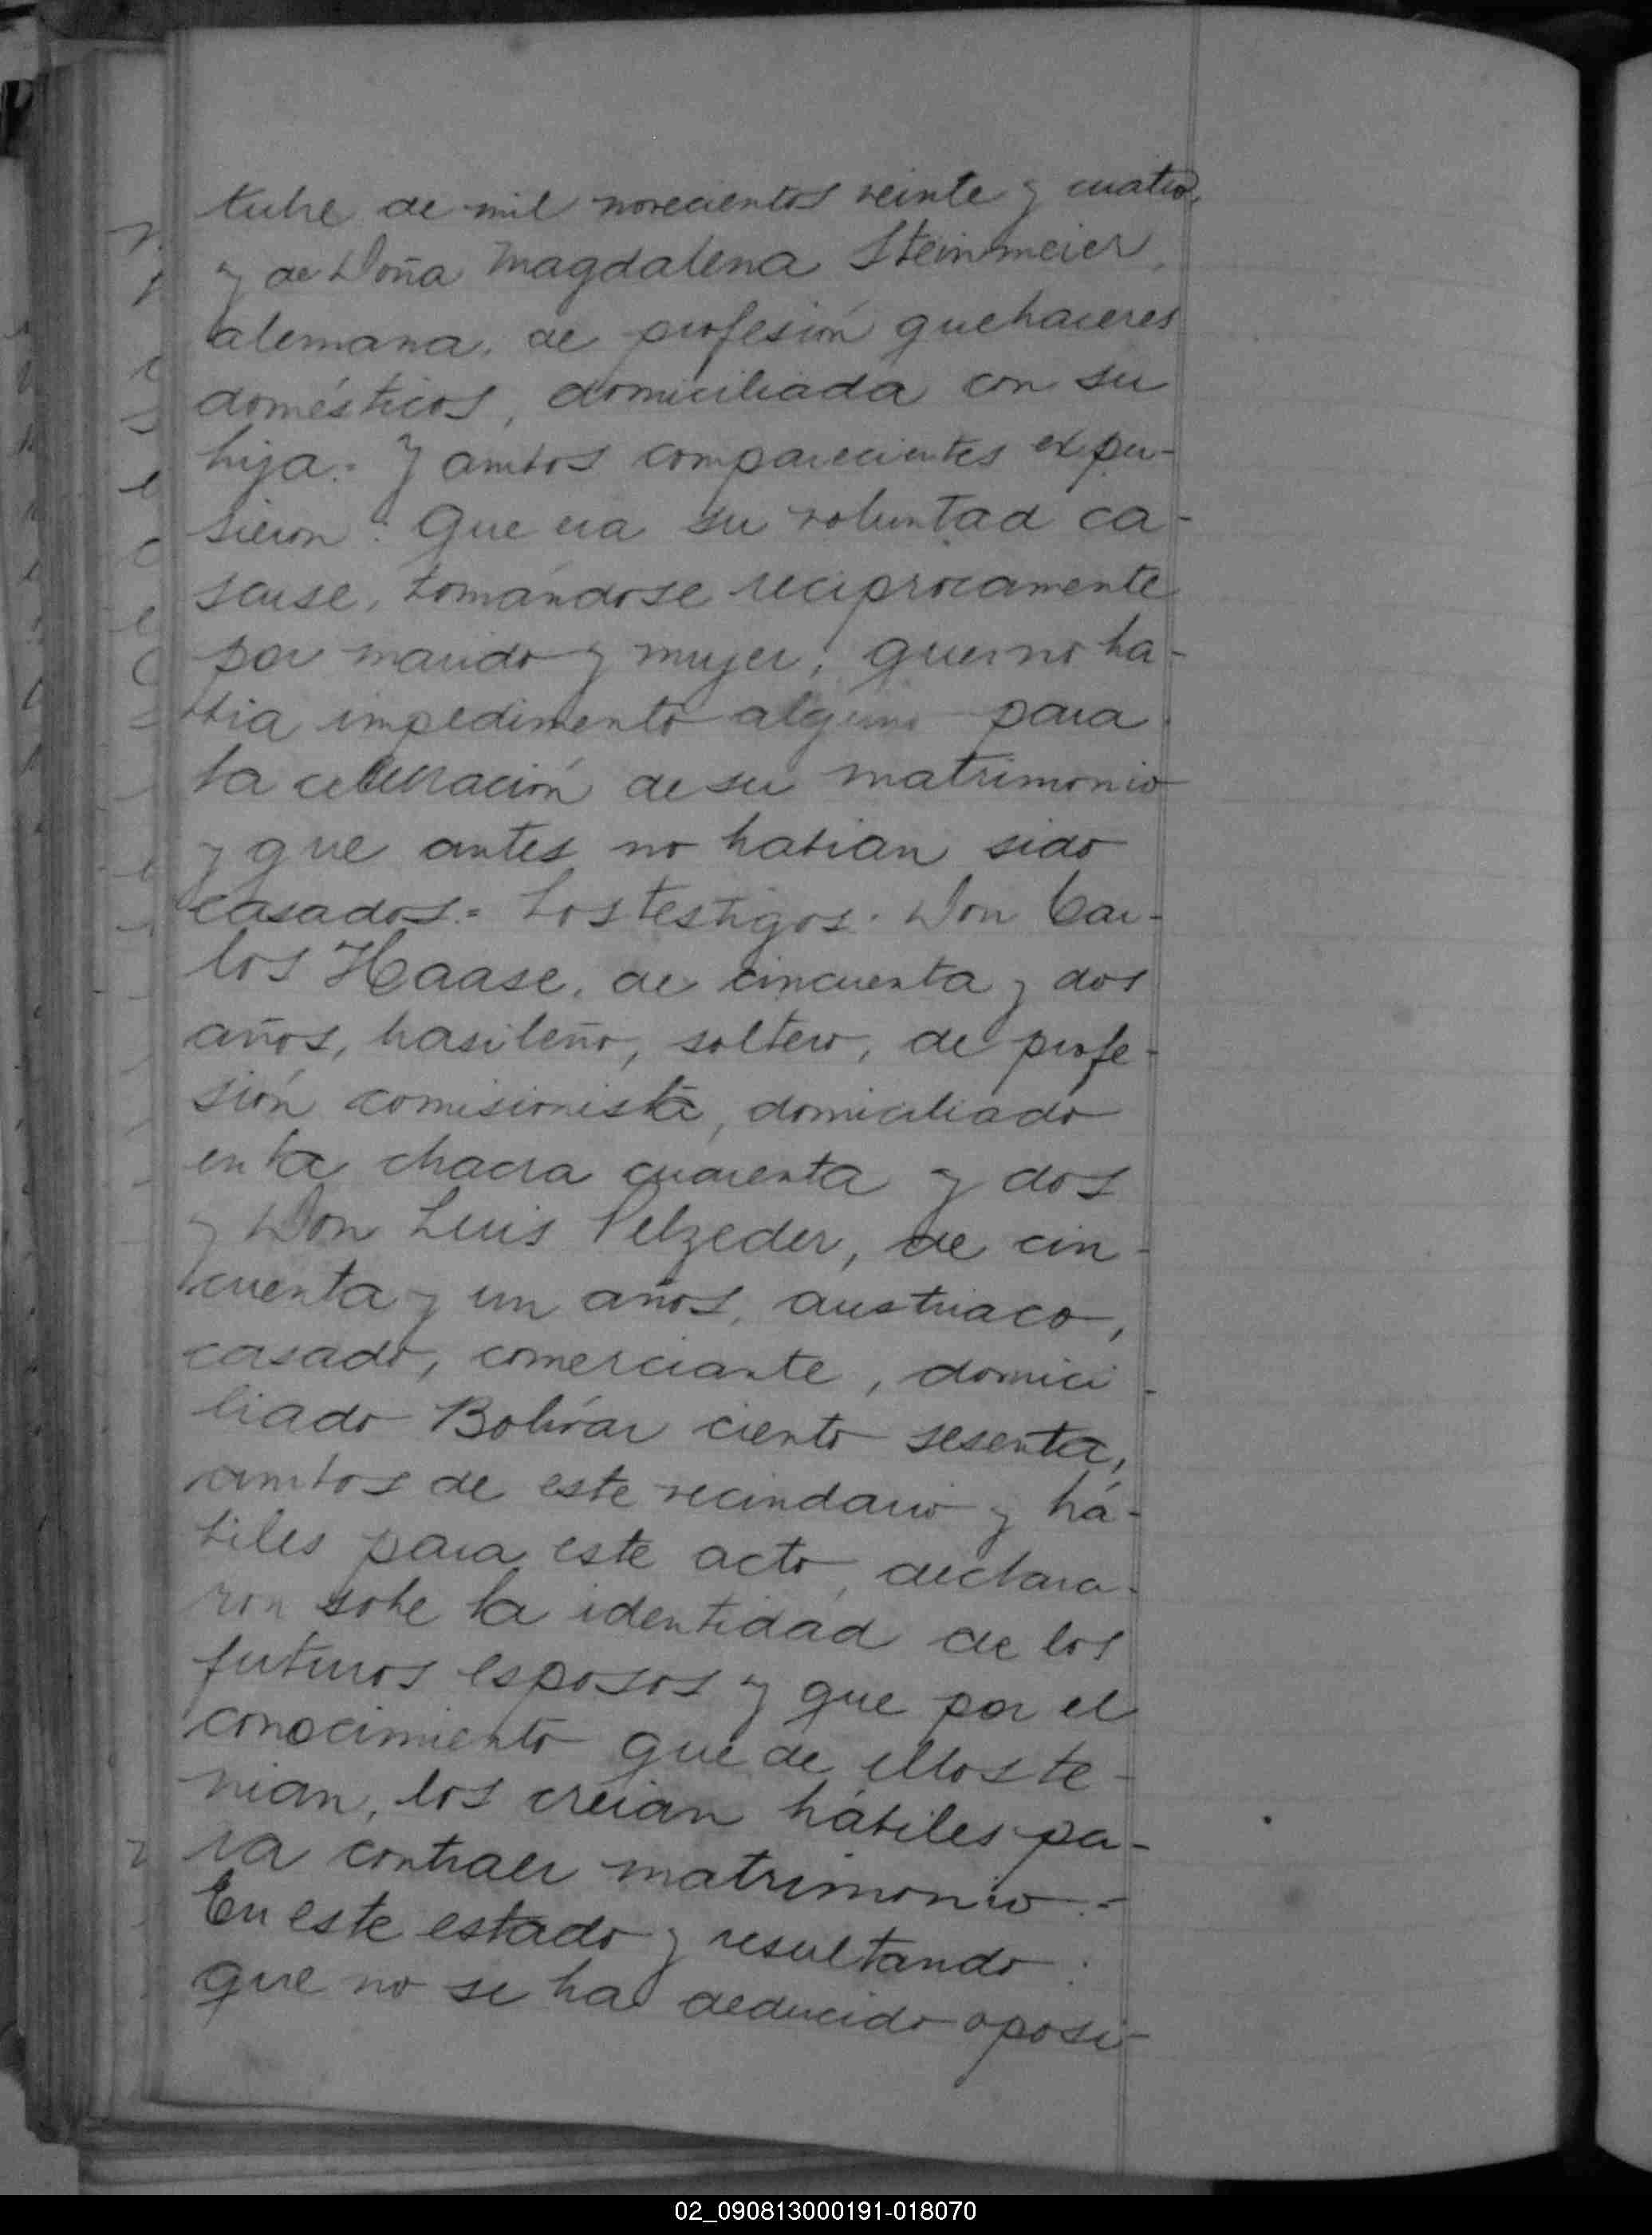 tubre de mil novecientos veinte y cuatro,
y de Doña Magdalena Steinmeier,
alemana, de profesión quehaceres
domésticos, domiciliada con su
hija.= Y ambos comparecientes expu-
sieron: Que era su voluntad ca-
sarse, tomándose reciprocamente
por marido y mujer; que no ha-
bia impedimento alguno para
la celebración de su matrimonio
y que antes no habian sido
casados.= Los testigos: Don Car-
los Haase, de cincuenta y dos
años, brasileño, soltero, de profe-
sión comisionista, domiciliado
en la chacra cuarenta y dos
y Don Luis Pelzeder, de cin-
cuenta y un años, austriaco,
casado, comerciante, domici-
liado Bolívar ciento sesenta,
ambos de este vecindario y há-
biles para este acto, declara-
ron sobre la identidad de los
futuros esposos y que por el
conocimiento que de ellos te-
nian, los creian hábiles pa-
ra contraer matrimonio.=
En este estado y resultando:
que no se ha deducido oposi-
02_090813000191-018070